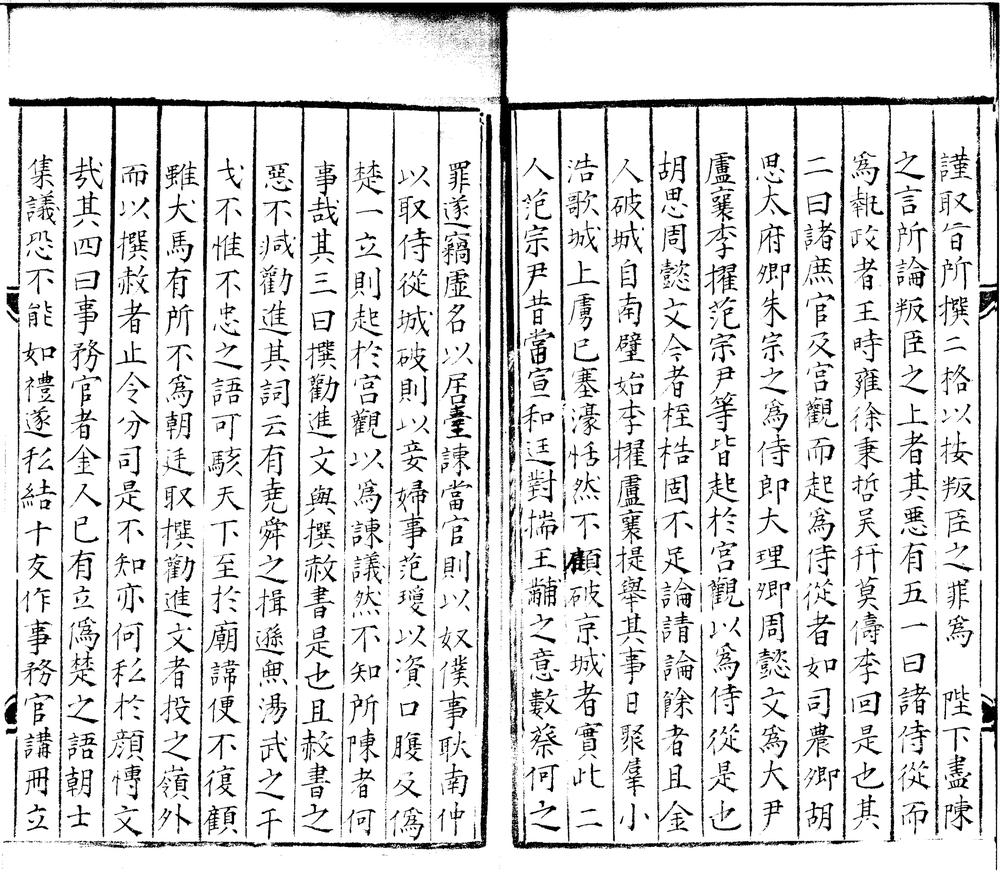 謹取旨所撰二格以按叛臣之罪爲　陛下盡陳
之言所論叛臣之上者其惡有五一曰諸侍從而
爲執政者王時雍徐秉哲吴幵莫儔李回是也其
二曰諸庶官及宫觀而起爲侍從者如司農卿胡
思太府卿朱宗之爲侍郎大理卿周懿文爲大尹
盧襄李擢范宗尹等皆起於宫觀以爲侍從是也
胡思周懿文今者桎梏固不足論請論餘者且金
人破城自南壁始李擢盧襄提舉其事日聚羣小
浩歌城上虜已塞濠恬然不顧破京城者實此二
人范宗尹昔當宣和廷對揣王黼之意數蔡何之
罪遂竊虚名以居臺諫當官則以奴僕事耿南仲
以取侍從城破則以妾婦事范瓊以資口腹及僞
楚一立則起於宫觀以爲諫議然不知所陳者何
事哉其三曰撰勸進文與撰赦書是也且赦書之
惡不減勸進其詞云有堯舜之揖遜無湯武之干
戈不惟不忠之語可駭天下至於廟諱便不復顧
雖犬馬有所不爲朝廷取撰勸進文者投之嶺外
而以撰赦者止令分司是不知亦何私於顔慱文
㢤其四曰事務官者金人已有立僞楚之語朝士
集議恐不能如禮遂私結十友作事務官講冊立